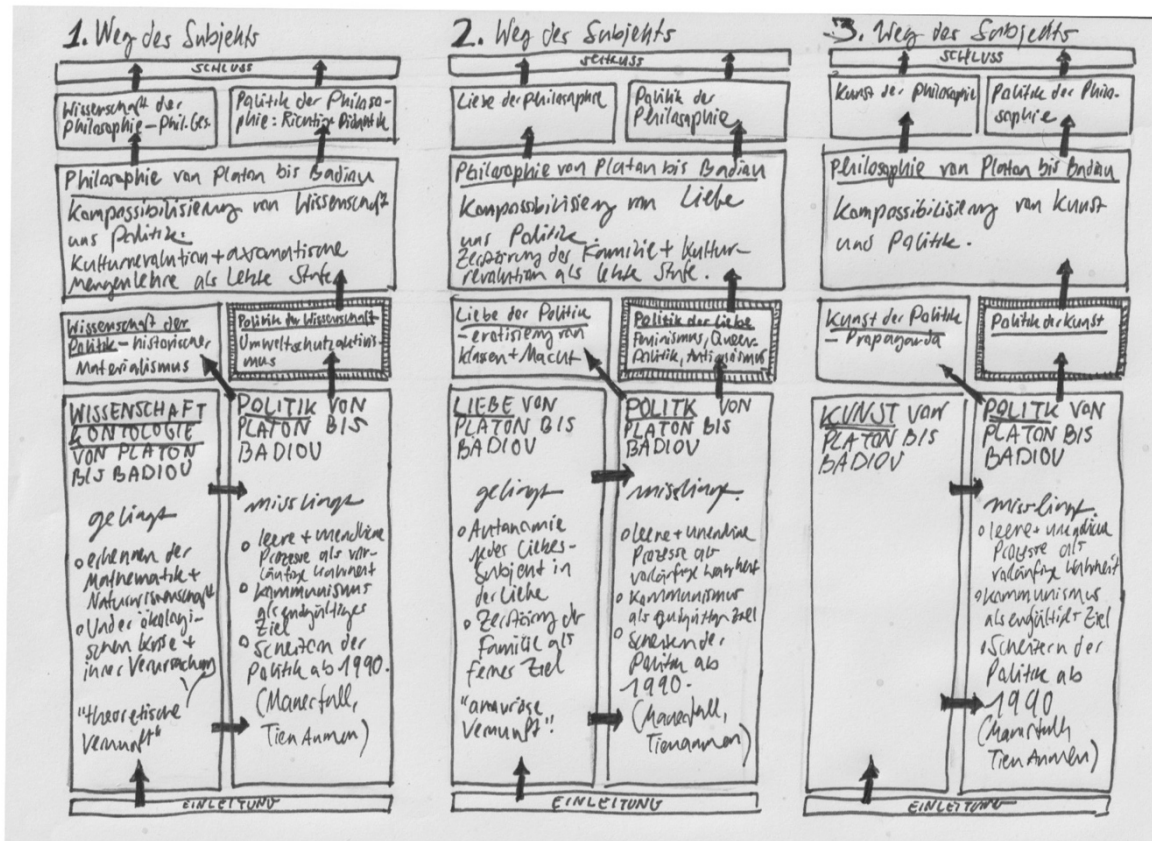 1. Weg des Subjekts
SCHLUSS
Wissenschaft der
Philosophie – Phil. Ges.
Politik der Philoso-
phie: Richtige Didaktik
Philosophie von Platon bis Badiou
Kompossibilisierung von Wissenschaft
uns Politik:
Kulturrevolution + axiomatische
Mengenlehre als letzte Stufe.
Wissenschaft der
Politik – historischer
Materialismus
Politik der Wissenschaft
Umweltschutzaktivis-
mus
WISSENSCHAFT
& ONTOLOGIE
VON PLATON
BIS BADIOU
gelingt
o erkennen der
Mathematik +
Naturwissenschaft
o Und der ökologi-
schen Krise +
ihrer Verursachung
"theoretische
Vernunft"
POLITIK VON
PLATON BIS
BADIOU
misslingt
o leere + unendliche
Prozesse als vor-
läufige Wahrheit
o Kommunismus
als endgültiges
Ziel
o Scheitern der
Politik ab 1990.
(Mauerfall,
Tien Anmen)
EINLEITUNG
2. Weg des Subjekts
SCHLUSS
Liebe der Philosophie
Politik der
Philosophie
Philosophie von Platon bis Badiou
Kompossibilisierung von Liebe
uns Politik.
Zerstörung der Familie + Kultur-
revolution als letzte Stufe.
Liebe der Politik
– erotisierung von
Klassen + Macht
Politik der Liebe
Feminismus, Queer-
Politik,
LIEBE VON
PLATON BIS
BADIOU
gelingt
o Autonomie
jedes Liebes-
subjekt in
der Liebe
o Zerstörung der
Familie als
fernes Ziel
"amouröse
Vernunft".
POLITK VON
PLATON BIS
BADIOU
misslingt.
o leere + unendliche
Prozesse als
vorläufige Wahrheit
o Kommunismus
als Ziel
o Scheitern der
Politik ab
1990.
(Mauerfall,
Tienanmen)
EINLEITUNG
3. Weg des Subjekts
SCHLUSS
Kunst der Philosophie
Politik der Philo-
sophie
Philosophie von Platon bis Badiou
Kompossibilisierung von Kunst
und Politik.
Kunst der Politik
– Propaganda
Politik der Kunst
KUNST VON
PLATON BIS
BADIOU
POLITK VON
PLATON BIS
BADIOU
misslingt.
o leere + unendliche
Prozesse als
vorläufige Wahrheit
o Kommunismus
als Ziel
o Scheitern der
Politik ab
1990
(Mauerfall,
Tien Anmen)
EINLEITUNG